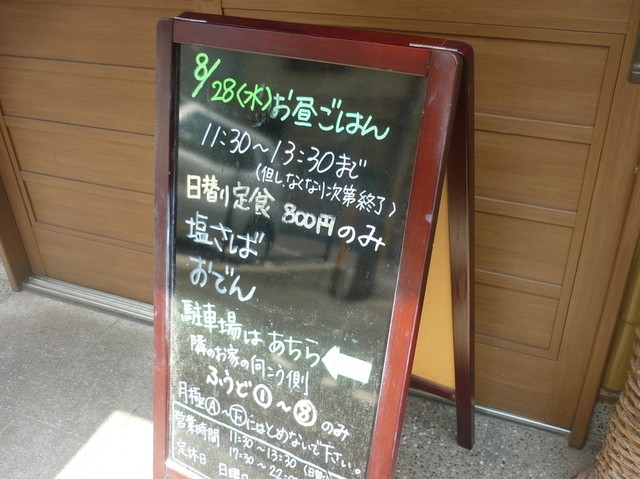 8/28(水)お昼ごはん
11:30～13:30まで
(但し、なくなり次第終了)
日替り定食 800円のみ
塩さば
おでん
駐車場はあちら
隣のお家の向こう側
ふうど①～⑧のみ
にはとめないで下さい。
営業時間 11:30～13:30(日替
17:30～22:
定休日 日曜